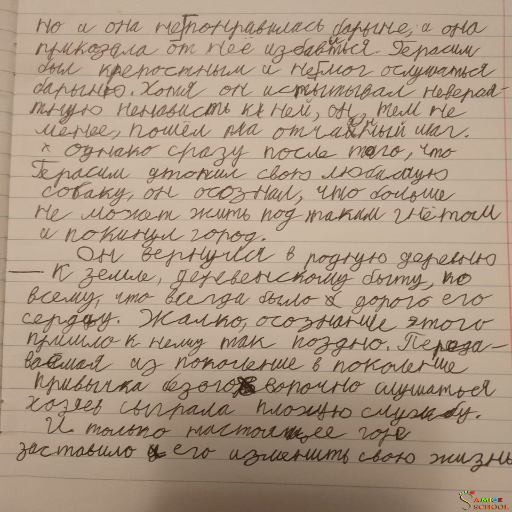 но и она не понравилась барыне, и она
приказала от неё избавиться. Герасим
был крепостным и не мог ослушаться
барыню. Хотя он испытывал неверая-
тную ненависть к ней, он, тем не
менее, пошёл на отчаянный шаг.
Однако сразу после того, что
Герасим утопил свою любимую
собаку, он осознал, что больше
не может жить под таким гнётом
и покинул город.
Он вернулся в родную деревню
К земле, деревенскому быту, ко
всему, что всегда было дорого его
сердцу. Жалко, осознание этого
пришло к нему так поздно. Переда-
ваемая из поколение в поколение
привычка безоговорочно слушаться
хозяев сыграла плохую службу.
И только настоящее горе
заставило его изменить свою жизнь
AMICE SCHOOL